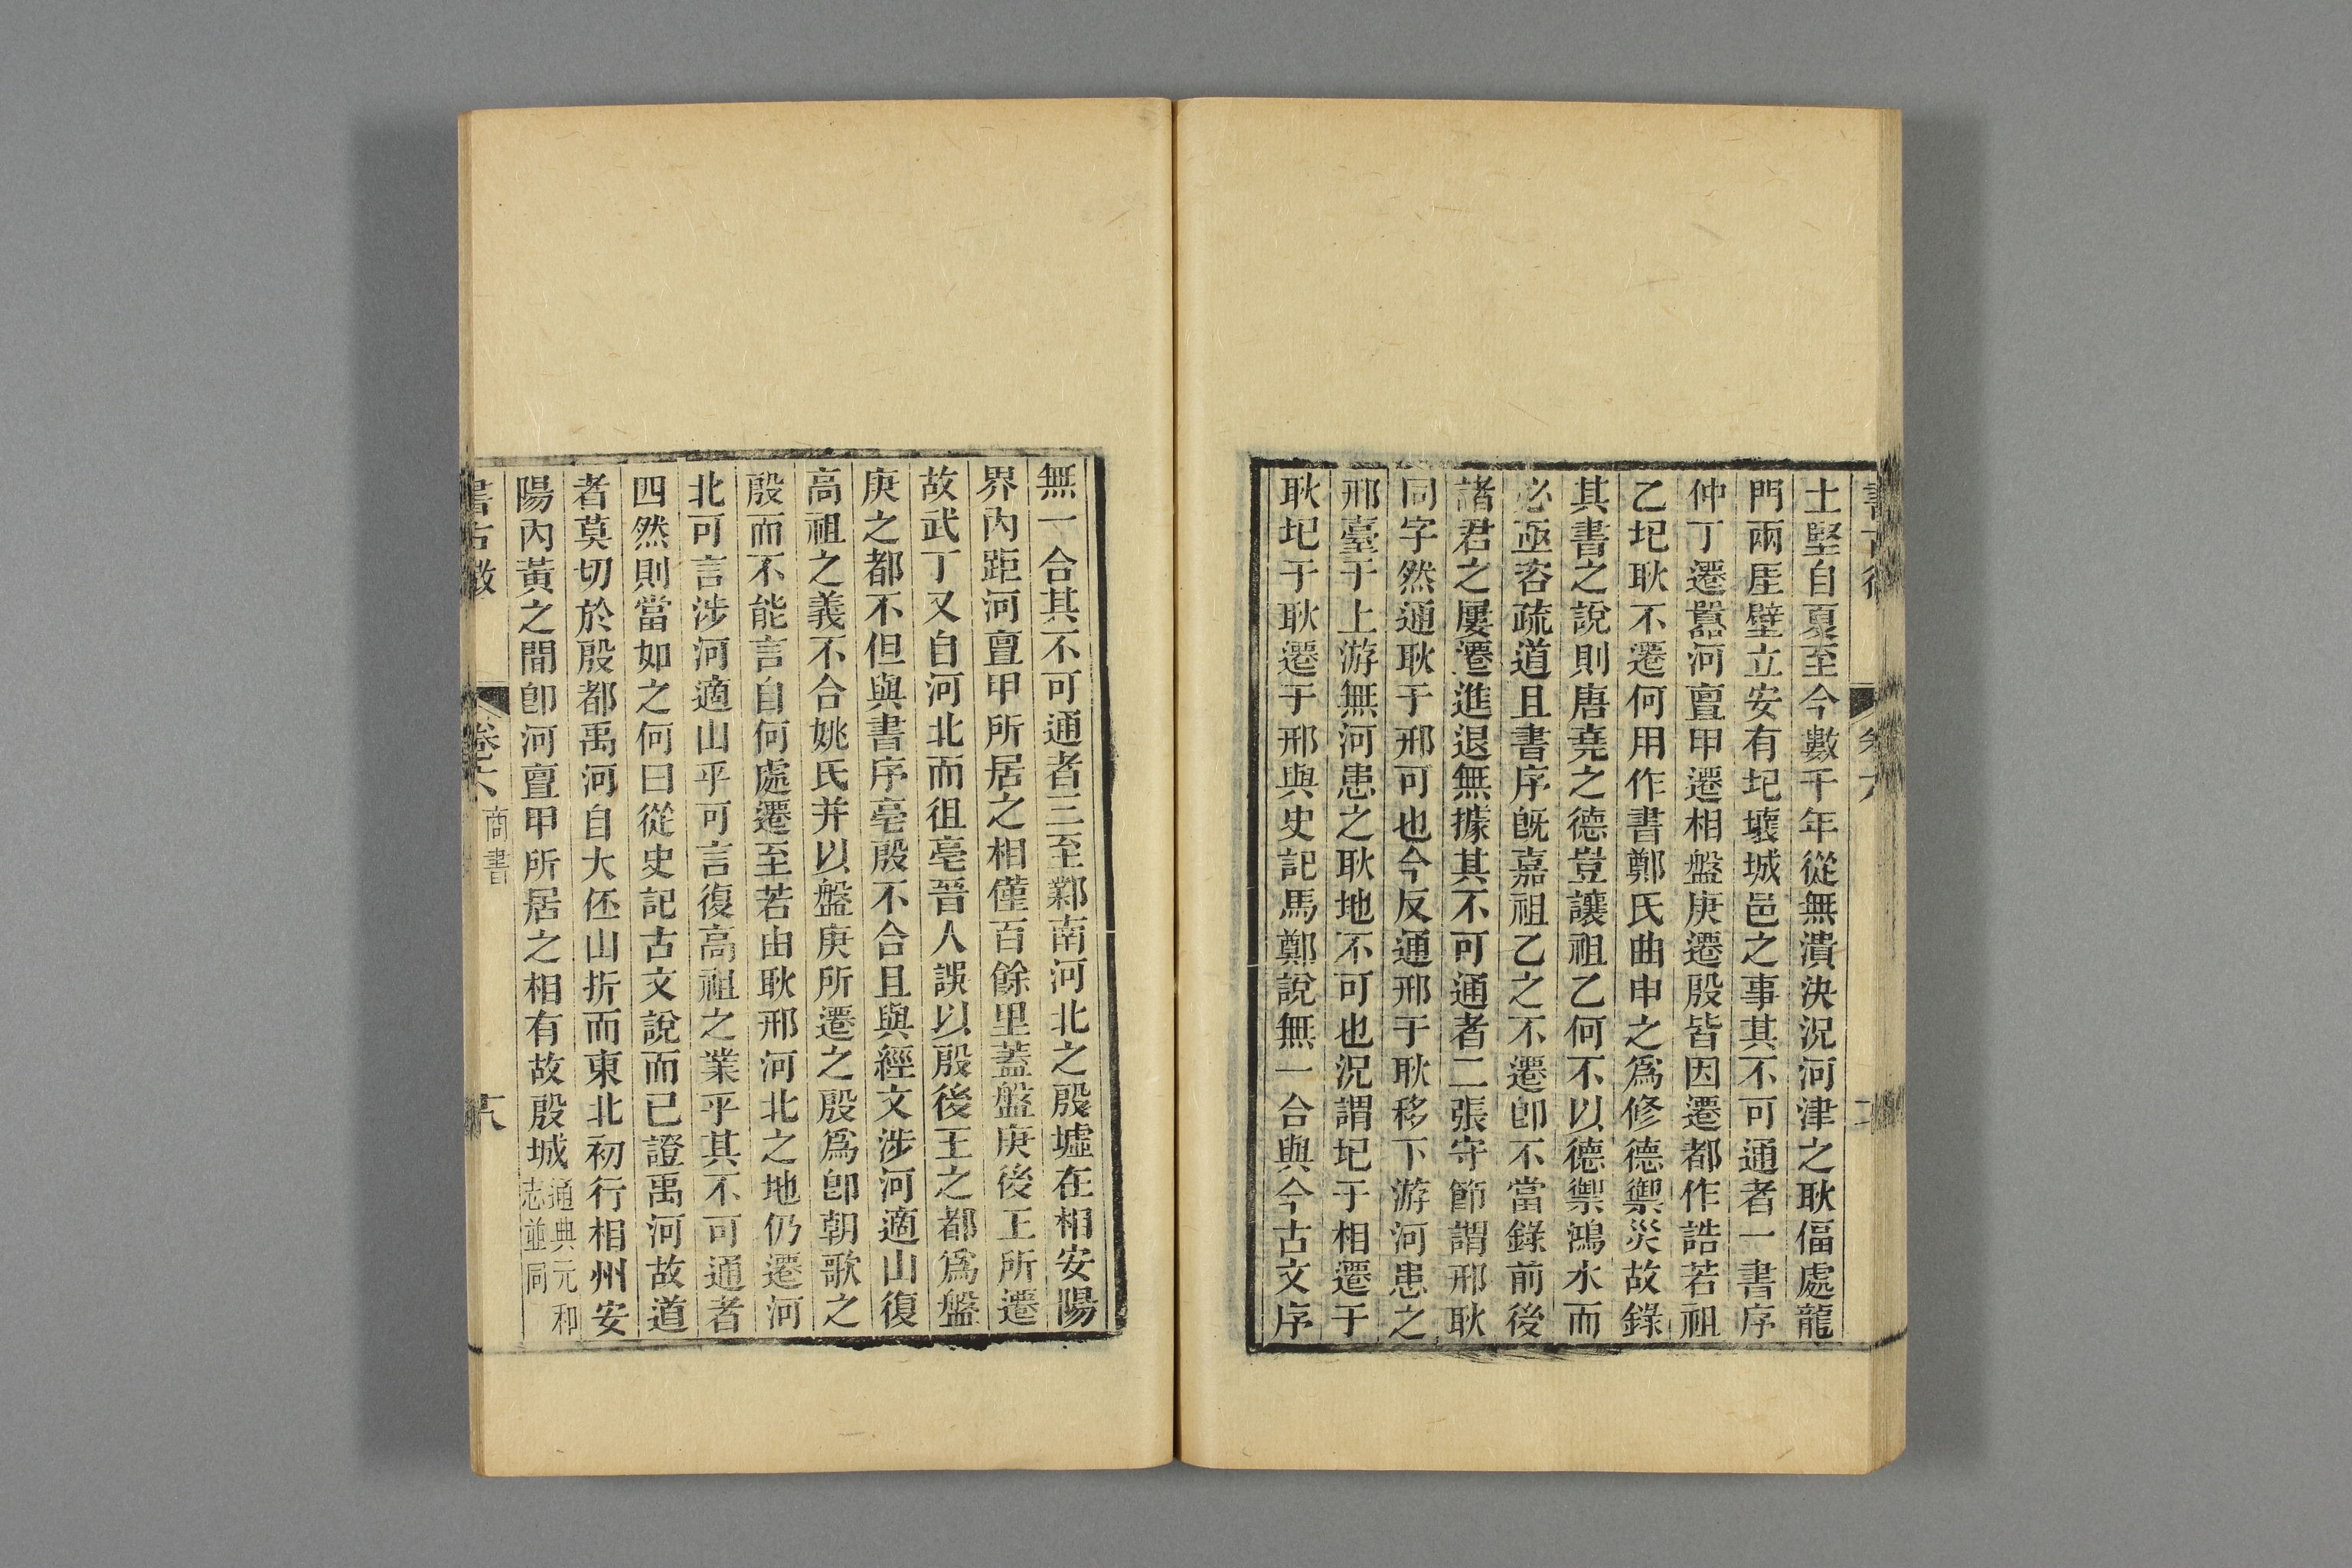 土堅自夏至今數千年從無潰決況河津之耿偪處龍
門兩厓壁立安有圮壞城邑之事其不可通者一書序
仲丁遷嚻河亶甲遷相盤庚遷殷皆因遷都作誥若祖
乙圮耿不遷何用作書鄭氏曲申之爲修德禦災故錄
其書之說則唐堯之德豈讓祖乙何不以德禦鴻水而
必亟咨疏道且書序旣嘉祖乙之不遷卽不當錄前後
諸君之屢遷進退無據其不可通者二張守節謂邢耿
同字然通耿于邢可也今反通邢于耿移下游河患之
邢臺于上游無河患之耿地不可也況謂圮于相遷于
耿圮于耿遷于邢與史記馬鄭說無一合與今古文序
無一合其不可通者三至鄴南河北之殷墟在相安陽
界內距河亶甲所居之相僅百餘里蓋盤庚後王所遷
故武丁又自河北而徂亳晉人誤以殷後王之都爲盤
庚之都不但與書序亳殷不合且與經文涉河適山復
高祖之義不合姚氏并以盤庚所遷之殷爲卽朝歌之
殷而不能言自何處遷至若由耿邢河北之地仍遷河
北可言涉河適山乎可言復高祖之業乎其不可通者
四然則當如之何曰從史記古文說而已證禹河故道
者莫切於殷都禹河自大伾山折而東北初行相州安
陽內黃之間卽河亶甲所居之相有故殷城通典元和志並同
書古微 卷六 商書 十八